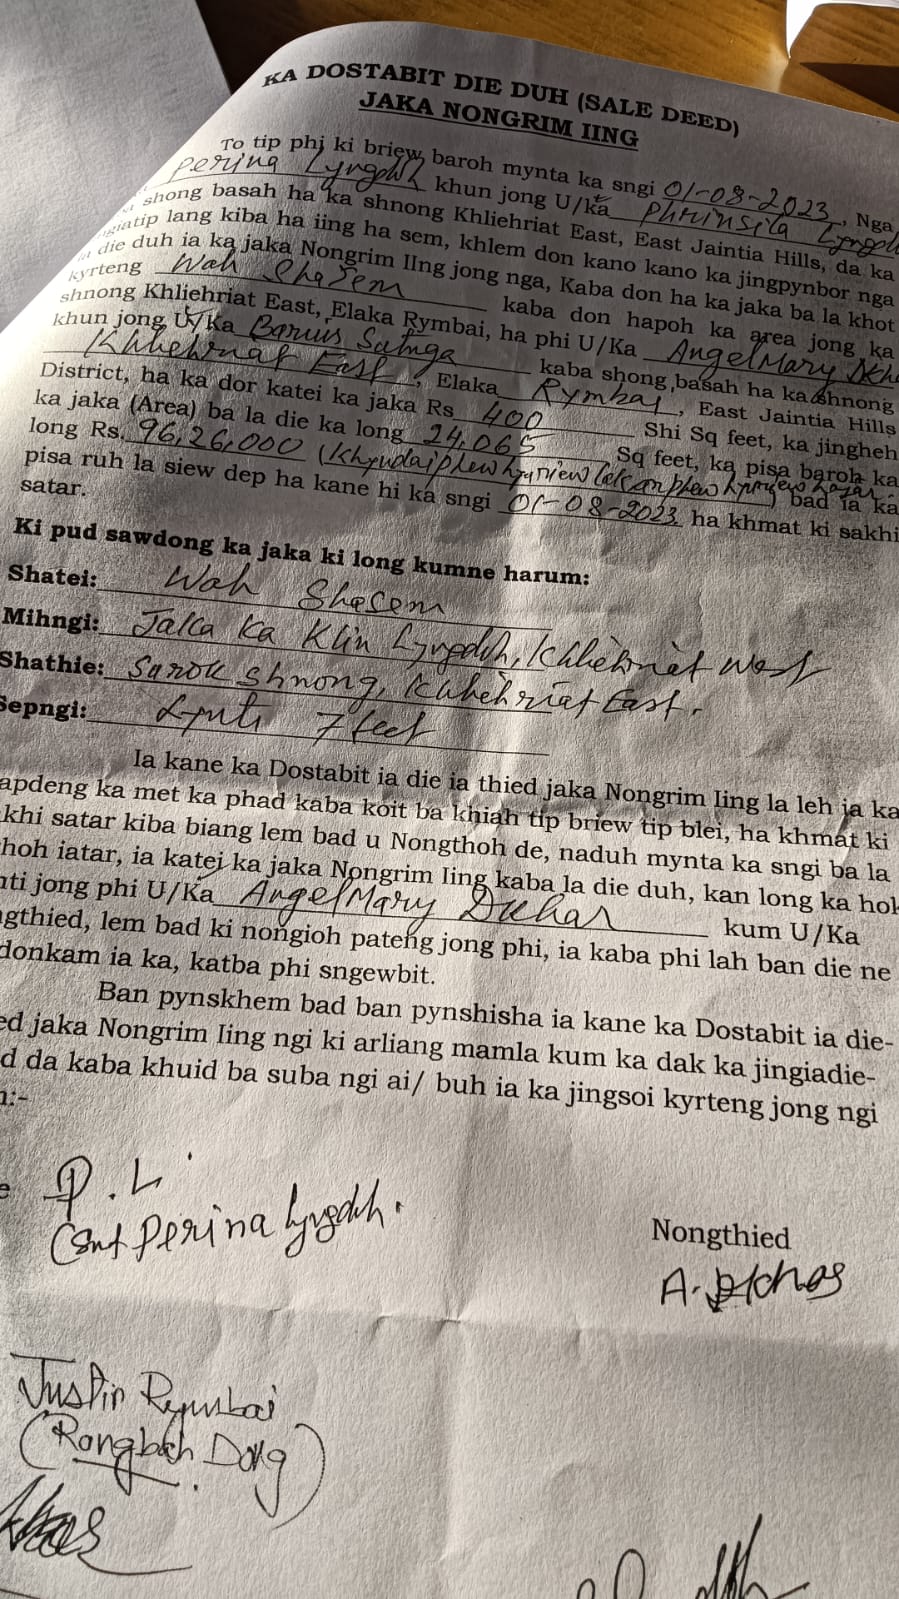 KA DOSTABIT DIE DUH (SALE DEED)
JAKA NONGRIM IING
To tip phi ki briew baroh mynta ka sngi 01-08-2023, Nga
Perina Lyngdoh khun jong U/ka Phrinsila Lyngdoh
shong basah ha ka shnong Khliehriat East, East Jaintia Hills, da ka
iatip lang kiba ha iing ha sem, khlem don kano kano ka jingpynbor nga
die duh ia ka jaka Nongrim IIng jong nga, Kaba don ha ka jaka ba la khot
kyrteng Wah Shasem kaba don hapoh ka area jong ka
shnong Khliehriat East, Elaka Rymbai, ha phi U/Ka AngelMary Dkh
khun jong U/Ka Barius Sutnga kaba shong basah ha ka shnong
Khliehriat East, Elaka Rymbai, East Jaintia Hills
District, ha ka dor katei ka jaka Rs 400 Shi Sq feet, ka jingheh
ka jaka (Area) ba la die ka long 24,065 Sq feet, ka pisa baroh ka
long Rs. 96,26,000 (Khyndaiphew hynriew lak arphew hynriew hajar) bad ia ka
pisa ruh la siew dep ha kane hi ka sngi 01-08-2023 ha khmat ki sakhi
satar.
Ki pud sawdong ka jaka ki long kumne harum:
Shatei: Wah Shasem
Mihngi: Jaka Ka Klin Lyngdoh, Khliehriat West
Shathie: Surok shnong, Khliehriat East.
Sepngi: Lynti 7 feet
Ia kane ka Dostabit ia die ia thied jaka Nongrim Iing la leh ia ka
apdeng ka met ka phad kaba koit ba khiah tip briew tip blei, ha khmat ki
khi satar kiba biang lem bad u Nongthoh de, naduh mynta ka sngi ba la
hoh iatar, ia katei ka jaka Nongrim Iing kaba la die duh, kan long ka hok
nti jong phi U/Ka AngelMary Dkhar kum U/Ka
ngthied, lem bad ki nongioh pateng jong phi, ia kaba phi lah ban die ne
donkam ia ka, katba phi sngewbit.
Ban pynskhem bad ban pynshisha ia kane ka Dostabit ia die-
ed jaka Nongrim Iing ngi ki arliang mamla kum ka dak ka jingiadie-
d da kaba khuid ba suba ngi ai/ buh ia ka jingsoi kyrteng jong ngi
:-
P.L.
(Smt Perina Lyngdoh.
Nongthied
A. Dkhar
Justin Rymbai
(Rangbah Dong)